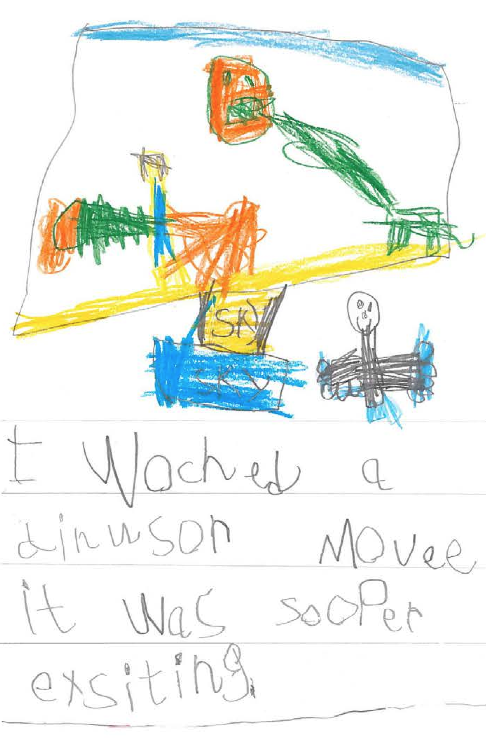 SKY
SKY
I Wached a
dinuson Movee
it was sooper
exsiting.